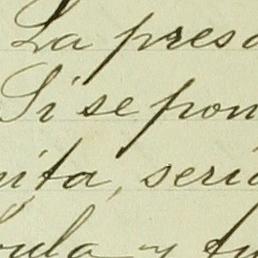 La presa
Si se pon
ita, seri
ula y tu